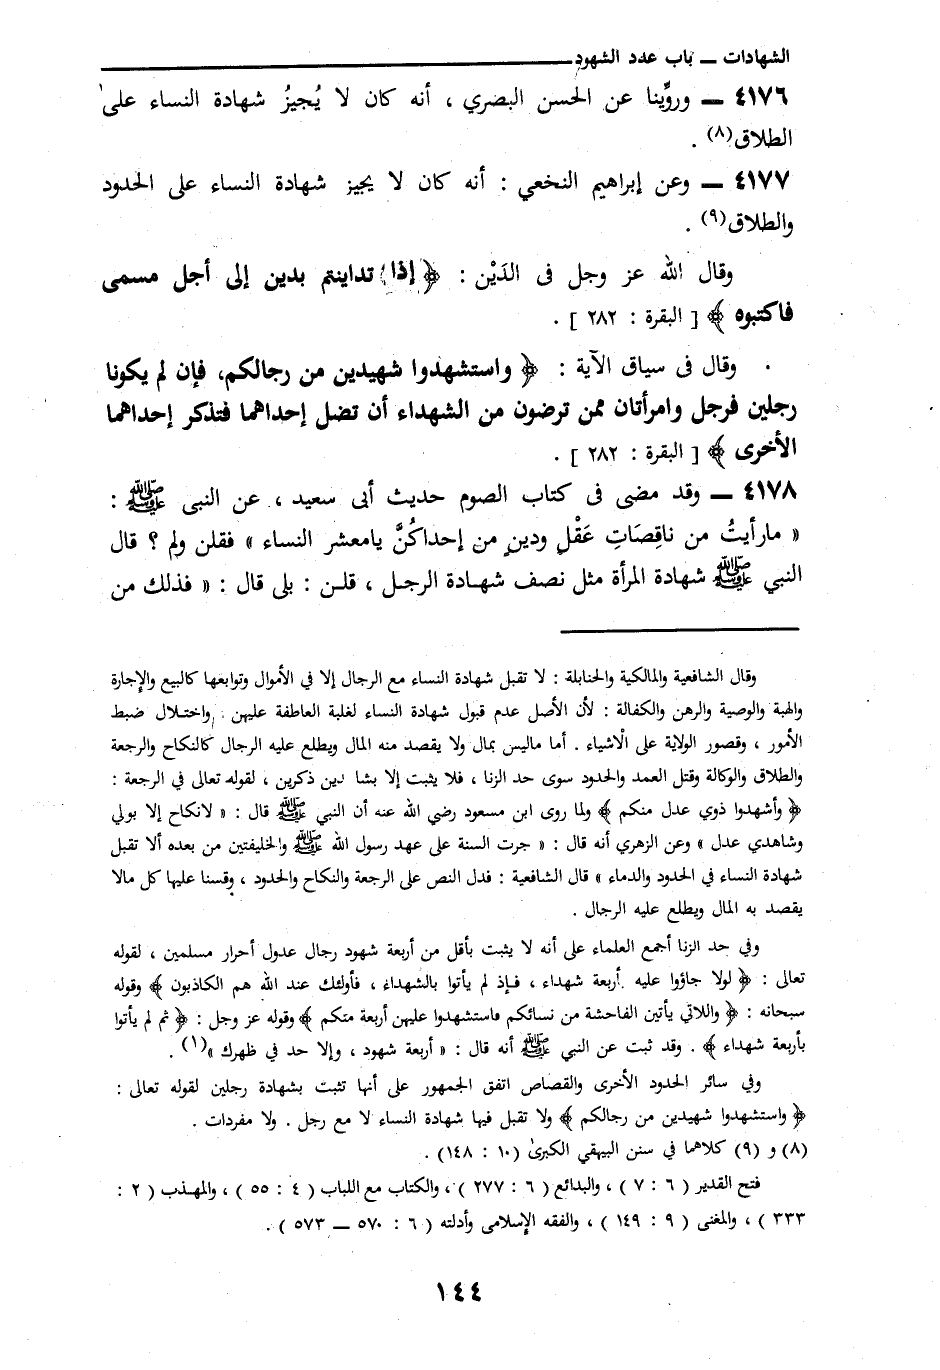 الشهادات ــ باب عدد الشهود
٤١٧٦ ــ وروِّينا عن الحسن البصري ، أنه كان لا يُجيزُ شهادة النساء على
الطلاق(٨) .
٤١٧٧ ــ وعن إبراهيم النخعي : أنه كان لا يجيز شهادة النساء على الحدود
والطلاق(٩) .
وقال الله عز وجل فى الدَيْن : ﴿ إذا تداينتم بدين إلى أجل مسمى
فاكتبوه ﴾ [ البقرة : ٢٨٢ ] .
وقال فى سياق الآية : ﴿ واستشهدوا شهيدين من رجالكم، فإن لم يكونا
رجلين فرجل وامرأتان ممن ترضون من الشهداء أن تضل إحداهما فتذكر إحداهما
الأخرى ﴾ [ البقرة : ٢٨٢ ] .
٤١٧٨ ــ وقد مضى فى كتاب الصوم حديث أبى سعيد ، عن النبى ﷺ :
« مارأيتُ من ناقِصَاتِ عَقْلٍ ودينٍ من إحداكُنَّ يامعشر النساء » فقلن ولم ؟ قال
النبي ﷺ شهادة المرأة مثل نصف شهادة الرجل ، قلن : بلى قال : « فذلك من
وقال الشافعية والمالكية والحنابلة : لا تقبل شهادة النساء مع الرجال إلا في الأموال وتوابعها كالبيع والإجارة
والهبة والوصية والرهن والكفالة : لأن الأصل عدم قبول شهادة النساء لغلبة العاطفة عليهن واختلال ضبط
الأمور ، وقصور الولاية على الأشياء . أما ماليس بمال ولا يقصد منه المال ويطلع عليه الرجال كالنكاح والرجعة
والطلاق والوكالة وقتل العمد والحدود سوى حد الزنا ، فلا يثبت إلا بشا دين ذكرين ، لقوله تعالى في الرجعة :
﴿ وأشهدوا ذوي عدل منكم ﴾ ولما روى ابن مسعود رضي الله عنه أن النبي ﷺ قال : « لانكاح إلا بولي
وشاهدي عدل » وعن الزهري أنه قال : « جرت السنة على عهد رسول الله ﷺ والخليفتين من بعده ألا تقبل
شهادة النساء في الحدود والدماء » قال الشافعية : فدل النص على الرجعة والنكاح والحدود ، وقسنا عليها كل مالا
يقصد به المال ويطلع عليه الرجال .
وفي حد الزنا أجمع العلماء على أنه لا يثبت بأقل من أربعة شهود رجال عدول أحرار مسلمين ، لقوله
تعالى : ﴿ لولا جاؤوا عليه أربعة شهداء ، فإذ لم يأتوا بالشهداء ، فأولئك عند الله هم الكاذبون ﴾ وقوله
سبحانه : ﴿ واللاتي يأتين الفاحشة من نسائكم فاستشهدوا عليهن أربعة منكم ﴾ وقوله عز وجل : ﴿ ثم لم يأتوا
بأربعة شهداء ﴾ . وقد ثبت عن النبي ﷺ أنه قال : « أربعة شهود ، وإلا حد في ظهرك »(١) .
وفي سائر الحدود الأخرى والقصاص اتفق الجمهور على أنها تثبت بشهادة رجلين لقوله تعالى :
﴿ واستشهدوا شهيدين من رجالكم ﴾ ولا تقبل فيها شهادة النساء لا مع رجل . ولا مفردات .
(٨) و (٩) كلاهما في سنن البيهقي الكبرىٰ (١٠ : ١٤٨) .
فتح القدير ( ٦ : ٧ ) ، والبدائع ( ٦ : ٢٧٧ ) ، والكتاب مع اللباب ( ٤ : ٥٥ ) ، والمهذب ( ٢ :
٣٣٣ ) ، والمغنى ( ٩ : ١٤٩ ) ، والفقه الإسلامى وأدلته ( ٦ : ٥٧٠ ــ ٥٧٣ ) .
١٤٤